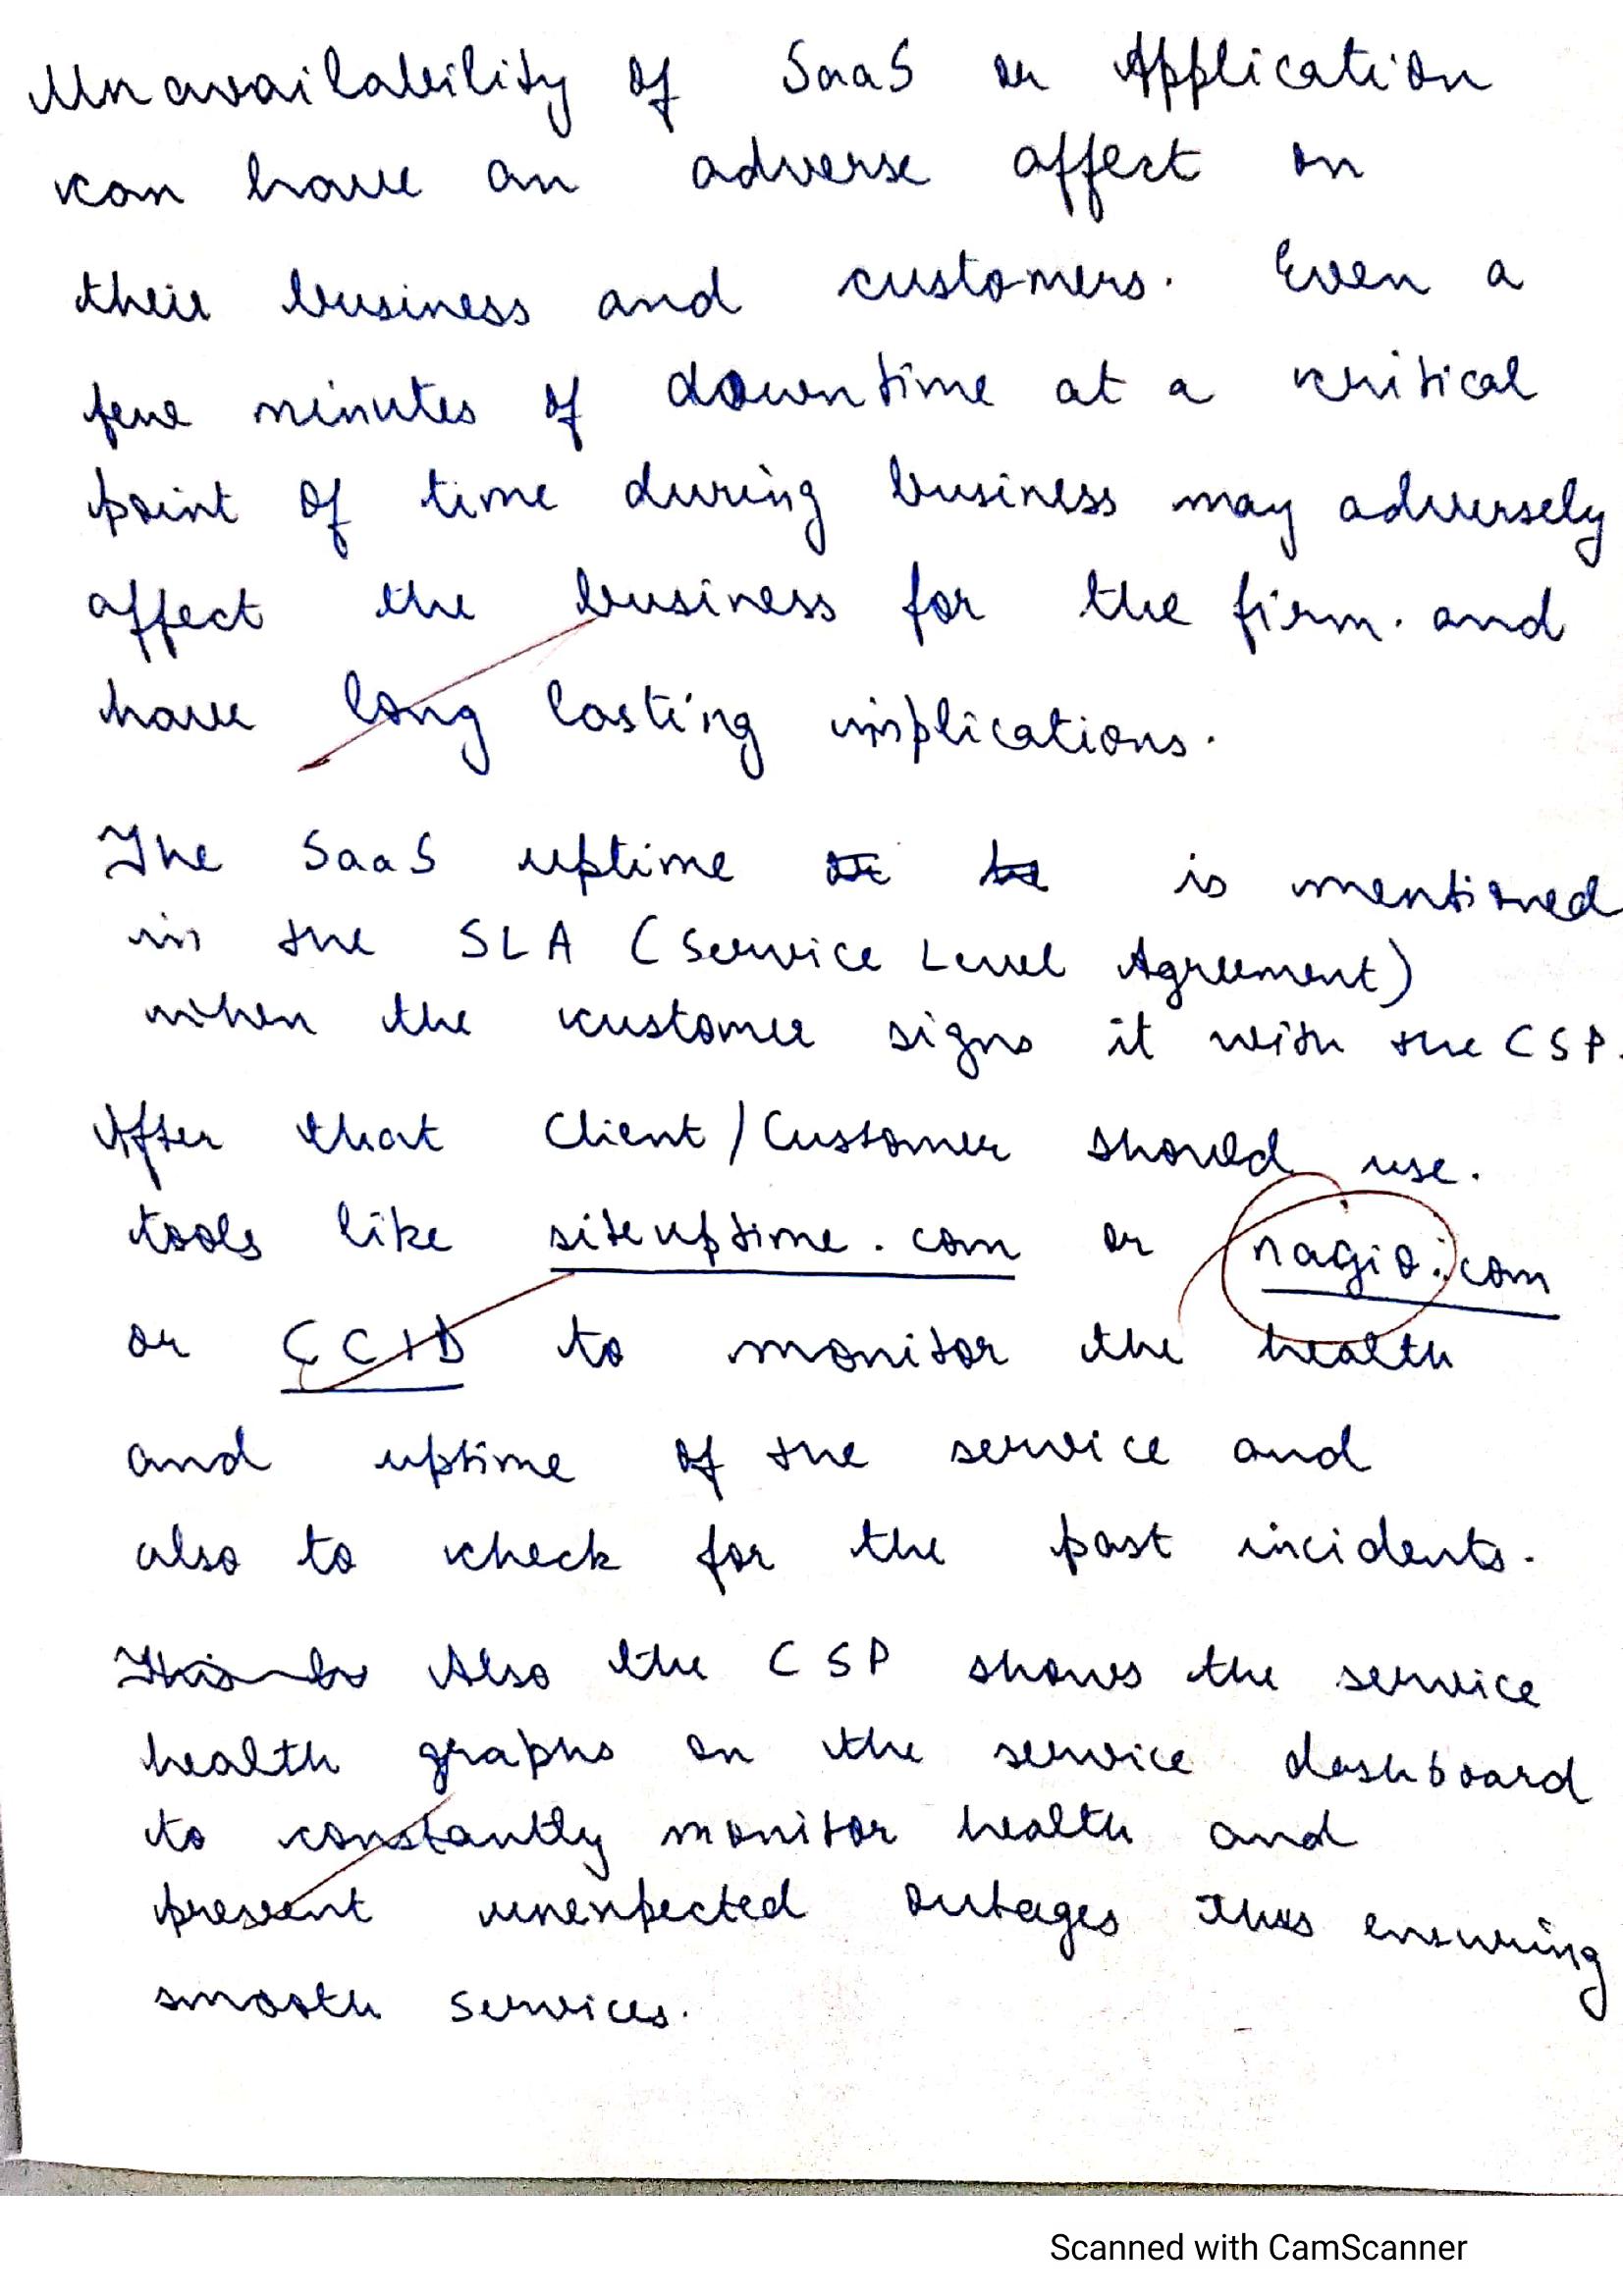 Unavailability of SaaS or Application
can have an adverse affect on
their business and customers. Even a
few minutes of downtime at a critical
point of time during business may adversely
affect the business for the firm. and
have long lasting implications.
The SaaS uptime is mentioned
in the SLA (Service Level Agreement)
when the customer signs it with the CSP.
After that Client/Customer should use.
tools like siteuptime.com or nagio.com
or to monitor the health
and uptime of the service and
also to check for the past incidents.
Also the CSP shows the service
health graphs on the service dashboard
to constantly monitor health and
present unexpected outages thus ensuring
smooth services.
Scanned with CamScanner